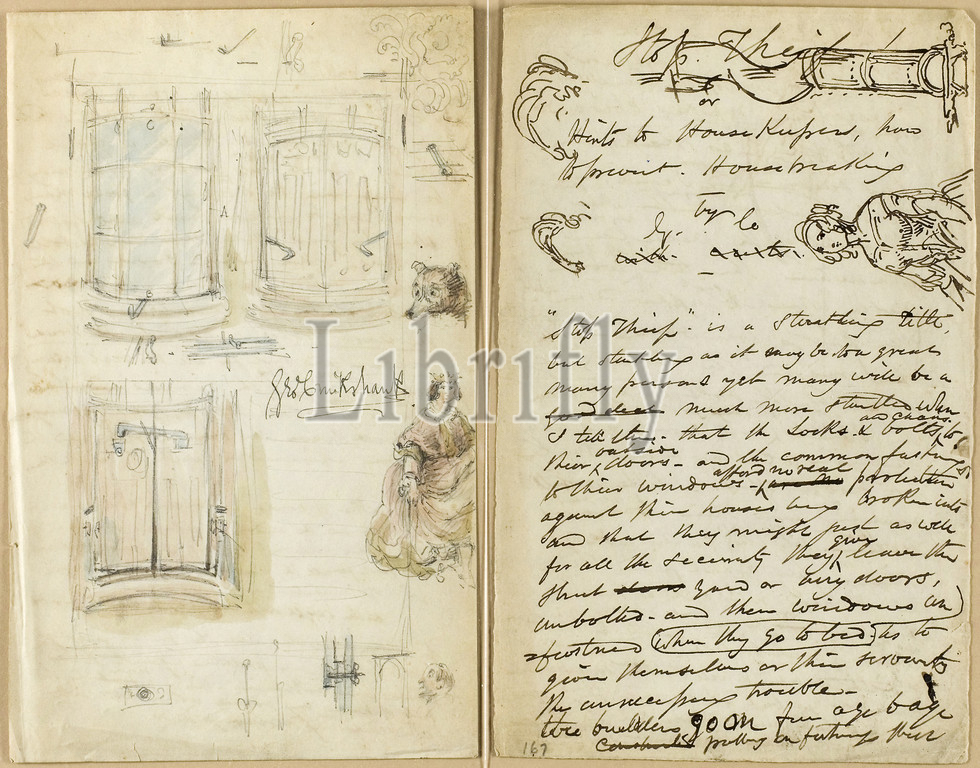 A
Geo Cruikshank
Librifly
Stop. Thief!
or
Hints to HouseKeepers, how
to prevent. Housebreaking
by. Geo
"Stop Thief" - is a startling title,
but startling as it may be to a great
many persons yet many will be a
good deal much more startled when
I tell them - that the Locks & bolts, and chains to
their outside doors - and the common fastenings
to their windows - afford no real protection
against their houses being broken into
and that they might just as well
for all the security they give, leave the
street doors yard or airy doors,
unbolted - and their windows un
=fastened (when they go to bed) as to
give themselves or their servants
the unnecessary trouble -
The builders go on from age to age
putting on fastenings their
167